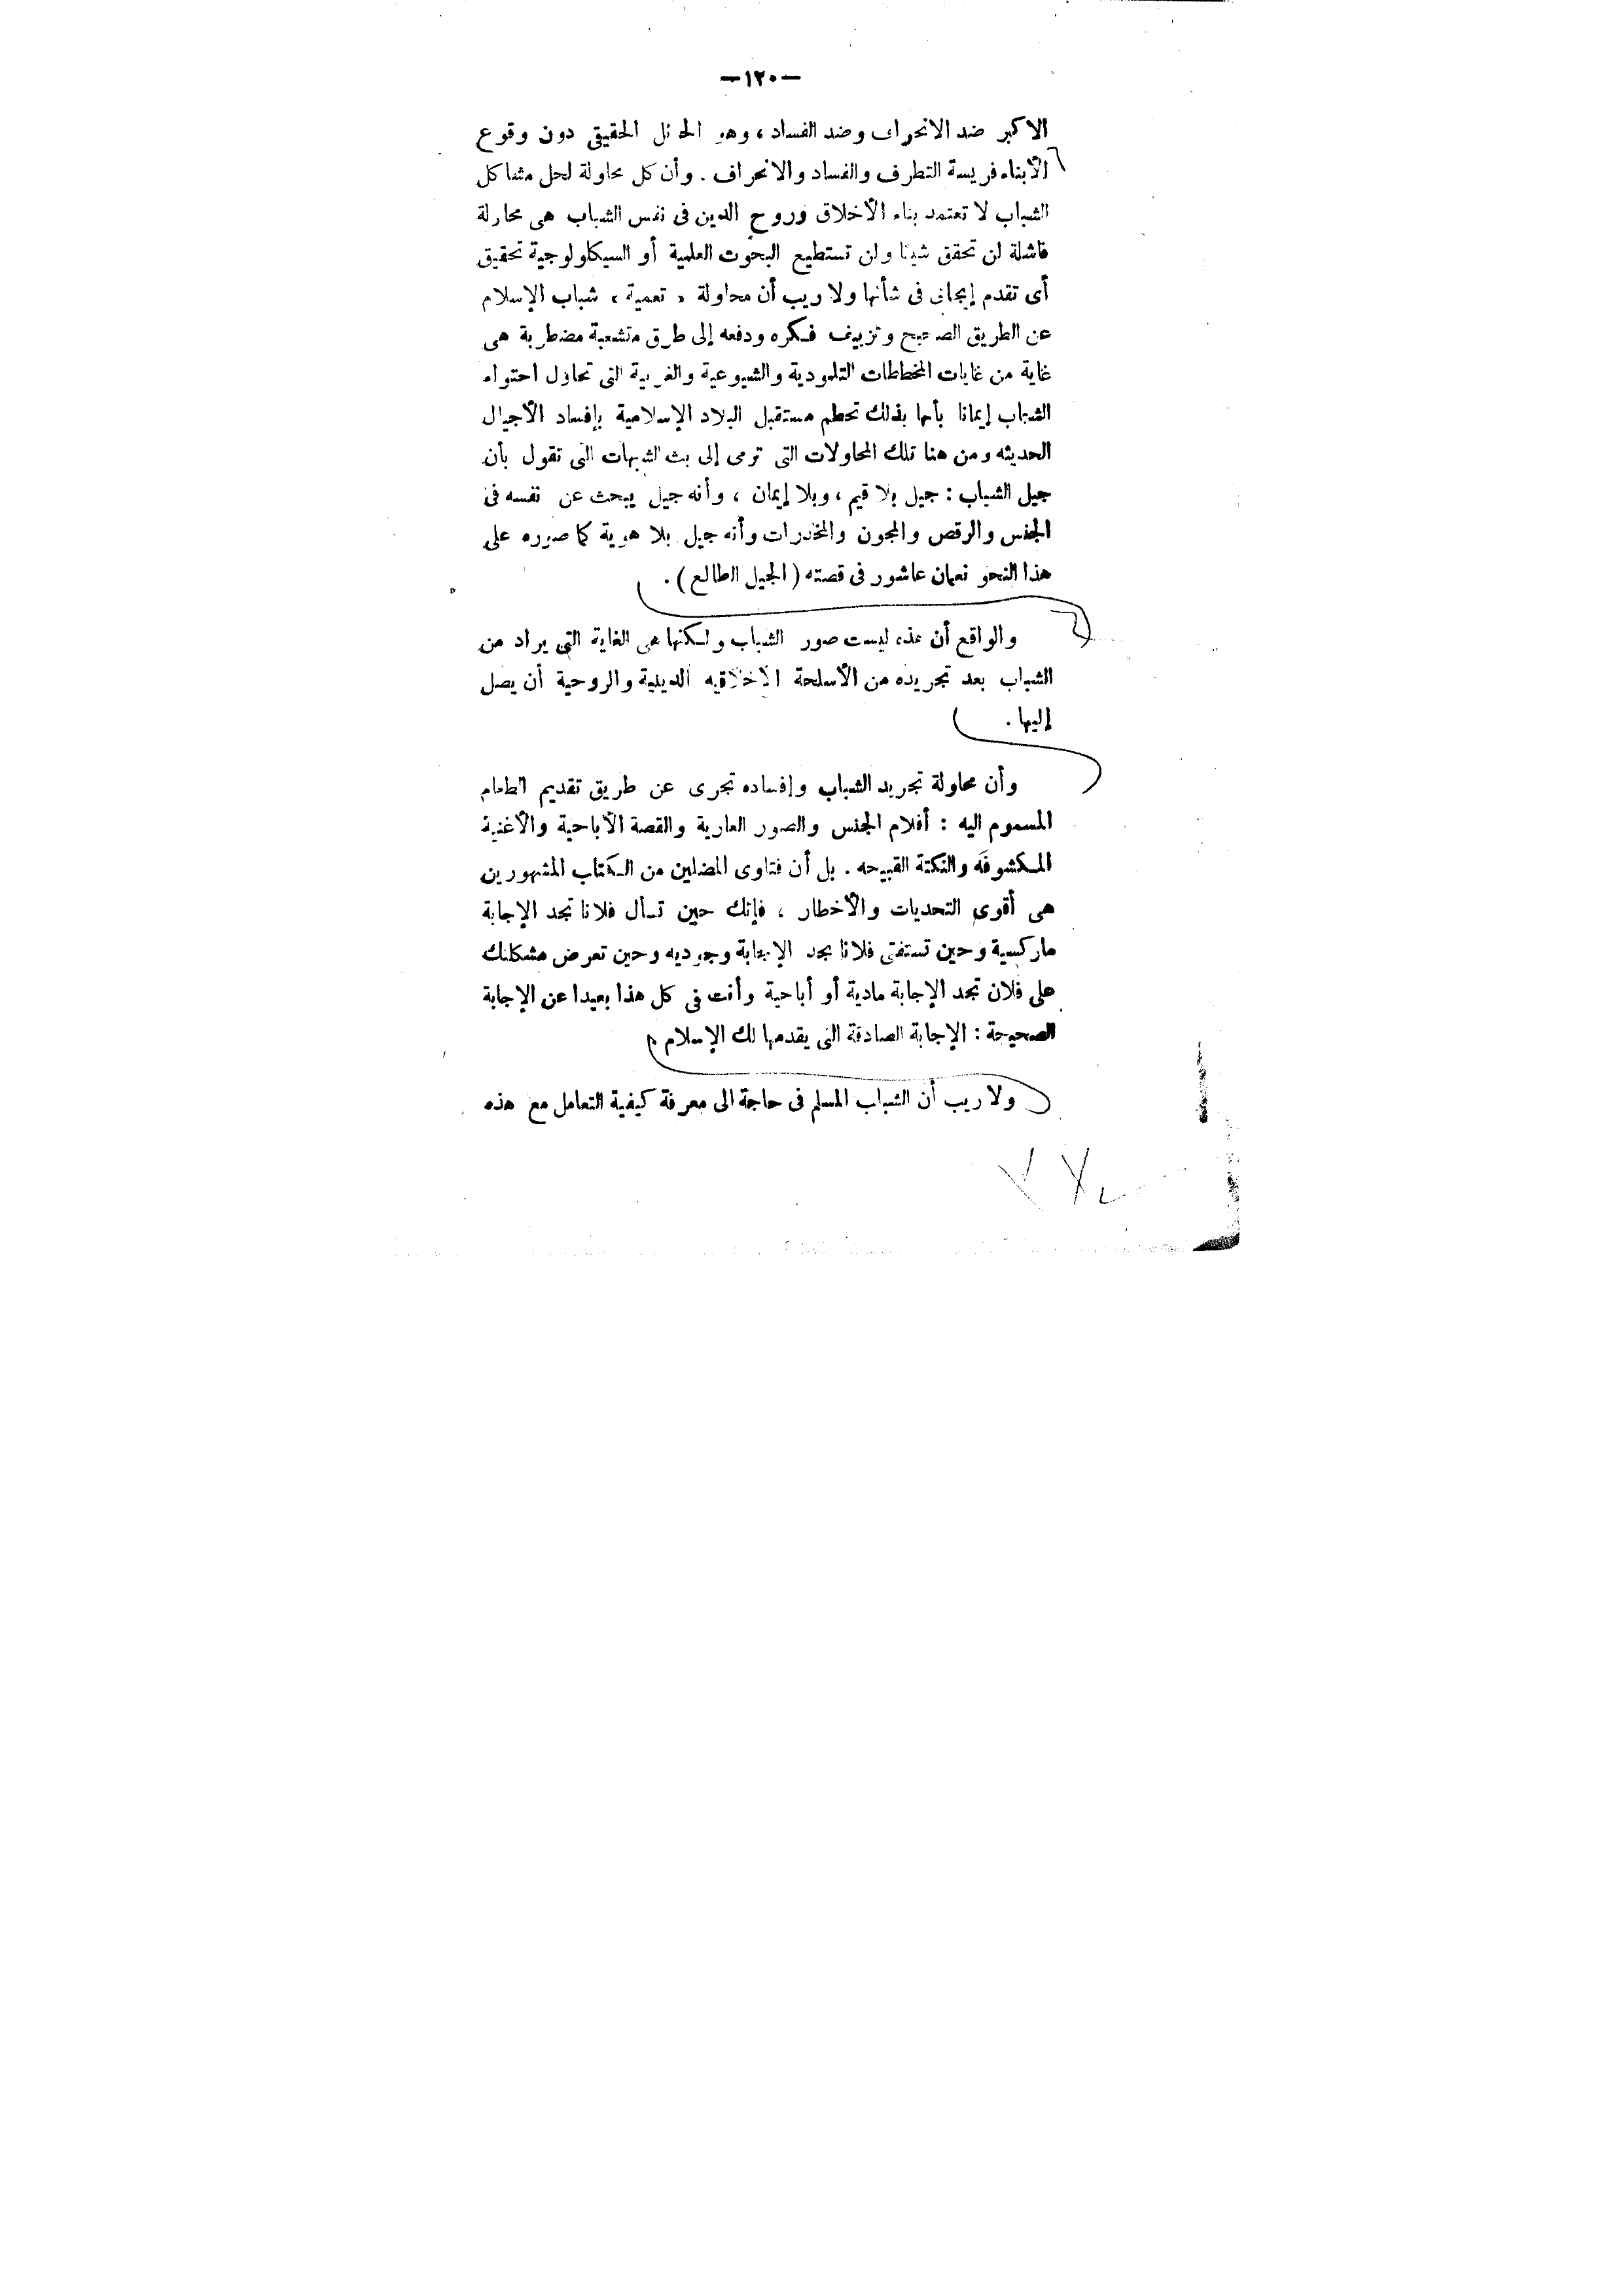 —١٢٠—
الاكبر ضد الانحراف وضد الفساد ، وهو الحائل الحقيقى دون وقوع
الأبناء فريسة التطرف والفساد والانحراف . وأن كل محاولة لحل مشاكل
الشباب لا تعتمد بناء الأخلاق وروح الدين فى نفس الشباب هى محاولة
فاشلة لن تحقق شيئا ولن تستطيع البحوث العلمية أو السيكلولوجية تحقيق
أى تقدم إيجابى فى شأنها ولا ريب أن محاولة « تعمية » شباب الإسلام
عن الطريق الصحيح وتزييف فكره ودفعه إلى طرق متشعبة مضطربة هى
غاية من غايات المخططات التلمودية والشيوعية والغربية التى تحاول احتواء
الشباب إيمانا بأنها بذلك تحطم مستقبل البلاد الإسلامية بإفساد الأجيال
الحديثه ومن هنا تلك المحاولات التى ترمى إلى بث الشبهات التى تقول بأن
جيل الشباب : جيل بلا قيم ، وبلا إيمان ، وأنه جيل يبحث عن نفسه فى
الجنس والرقص والمجون والمخدرات وأنه جيل بلا هوية كما صوره على
هذا النحو نعمان عاشور فى قصته ( الجيل الطالع ) .
والواقع أن هذه ليست صور الشباب ولكنها هى الغاية التى يراد من
الشباب بعد تجريده من الأسلحة الأخلاقيه الدينية والروحية أن يصل
إليها .
وأن محاولة تجريد الشباب وإفساده تجرى عن طريق تقديم الطعام
المسموم اليه : أفلام الجنس والصور العارية والقصة الأباحية والأغنية
المكشوفة والنكتة القبيحه . بل أن فتاوى المضلين من الكتاب المشهورين
هى أقوى التحديات والأخطار ، فإنك حين تسأل فلانا تجد الإجابة
ماركسية وحين تستفتى فلانا تجد الإجابة وجوديه وحين تعرض مشكلتك
على فلان تجد الإجابة مادية أو أباحية وأنت فى كل هذا بعيدا عن الإجابة
الصحيحة : الإجابة الصادقة التى يقدمها لك الإسلام .
ولا ريب أن الشباب المسلم فى حاجة الى معرفة كيفية التعامل مع هذه